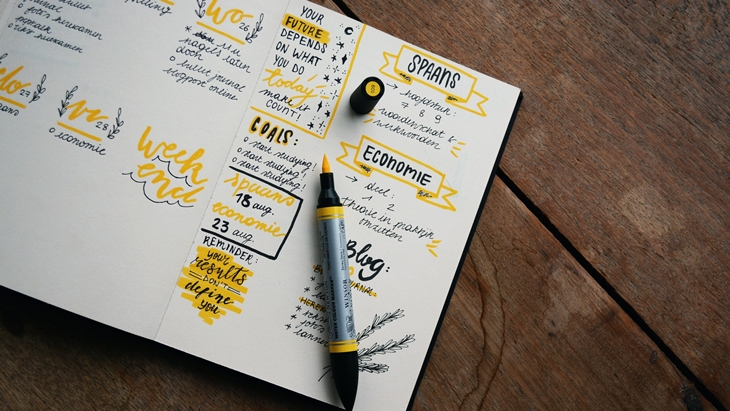 wo
26
nagels laten
doen
o bullet journal
blogpost online
27
vr
28
o economie
week
end
YOUR
FUTURE
DEPENDS
ON WHAT
YOU DO
today
make it
COUNT!
GOALS:
o start studying!
o start studying!
o start studying!
spaans
18 aug.
economie
23 aug.
REMINDER:
your
results
DON'T
define
you
SPAANS
→ hoofdstuk:
7 8 9
woordenschat &
werkwoorden
ECONOMIE
→ deel:
1 2
theorie in praktijk
omzetten
Blog:
WINSOR